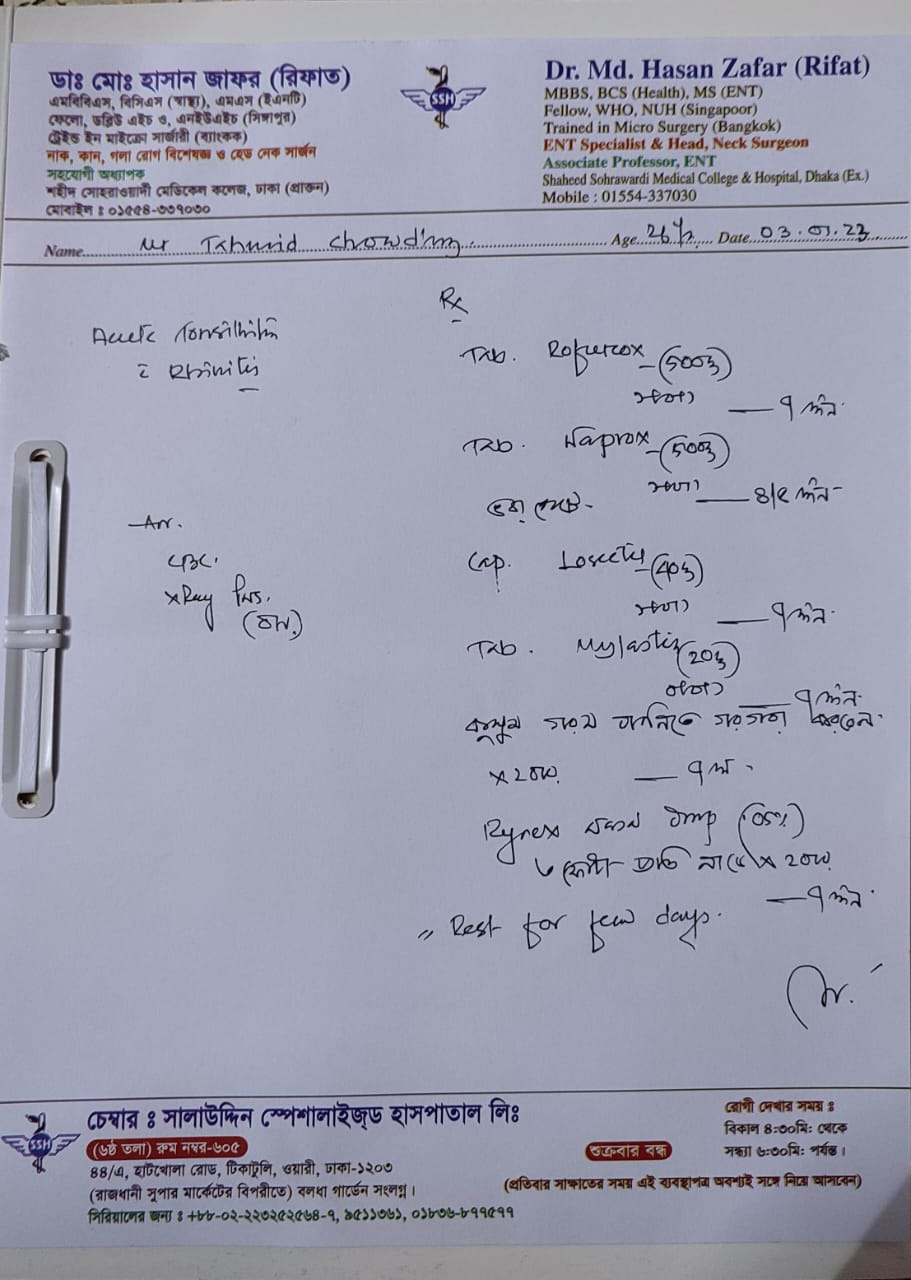 ডাঃ মোঃ হাসান জাফর (রিফাত)
এমবিবিএস, বিসিএস (স্বাস্থ্য), এমএস (ইএনটি)
ফেলো, ডব্লিউ এইচ ও, এনইউএইচ (সিঙ্গাপুর)
ট্রেইন্ড ইন মাইক্রো সার্জারী (ব্যাংকক)
নাক, কান, গলা রোগ বিশেষজ্ঞ ও হেড নেক সার্জন
সহযোগী অধ্যাপক
শহীদ সোহরাওয়ার্দী মেডিকেল কলেজ, ঢাকা (প্রাক্তন)
মোবাইল : ০১৫৫৪-৩৩৭০৩০
SSH
Dr. Md. Hasan Zafar (Rifat)
MBBS, BCS (Health), MS (ENT)
Fellow, WHO, NUH (Singapoor)
Trained in Micro Surgery (Bangkok)
ENT Specialist & Head, Neck Surgeon
Associate Professor, ENT
Shaheed Sohrawardi Medical College & Hospital, Dhaka (Ex.)
Mobile : 01554-337030
Name Mr Chowdhury Age 26 Date 03.01.23
Acute Tonsillitis
c Rhinitis
Adv.
CBC.
xRay PNS.
Rx
Tab. Rofurox (500)
১+০+১ — ৭ দিন
Tab. Naprox (500)
১+০+১ — ৪/৫ দিন
ভরা পেটে
Cap. Losectil (40)
১+০+১ — ৭ দিন
Tab. (20)
০+০+১ — ৭ দিন
কুসুম গরম পানিতে গরগরা করবেন
— ৭ দিন
Rynex Drop (05%)
ফোঁটা প্রতি নাকে
— ৭ দিন
" Rest for few days.
SSH
চেম্বার : সালাউদ্দিন স্পেশালাইজ্ড হাসপাতাল লিঃ
(৬ষ্ঠ তলা) রুম নম্বর-৬০৫
৪৪/এ, হাটখোলা রোড, টিকাটুলি, ওয়ারী, ঢাকা-১২০৩
(রাজধানী সুপার মার্কেটের বিপরীতে) বলধা গার্ডেন সংলগ্ন।
সিরিয়ালের জন্য : +৮৮-০২-২২৩২৫২৫৬৪-৭, ৯৫১১৩৬১, ০১৮৩৬-৮৭৭৫৭৭
শুক্রবার বন্ধ
রোগী দেখার সময় :
বিকাল ৪:৩০মি: থেকে
সন্ধ্যা ৬:৩০মি: পর্যন্ত।
(প্রতিবার সাক্ষাতের সময় এই ব্যবস্থাপত্র অবশ্যই সঙ্গে নিয়ে আসবেন)